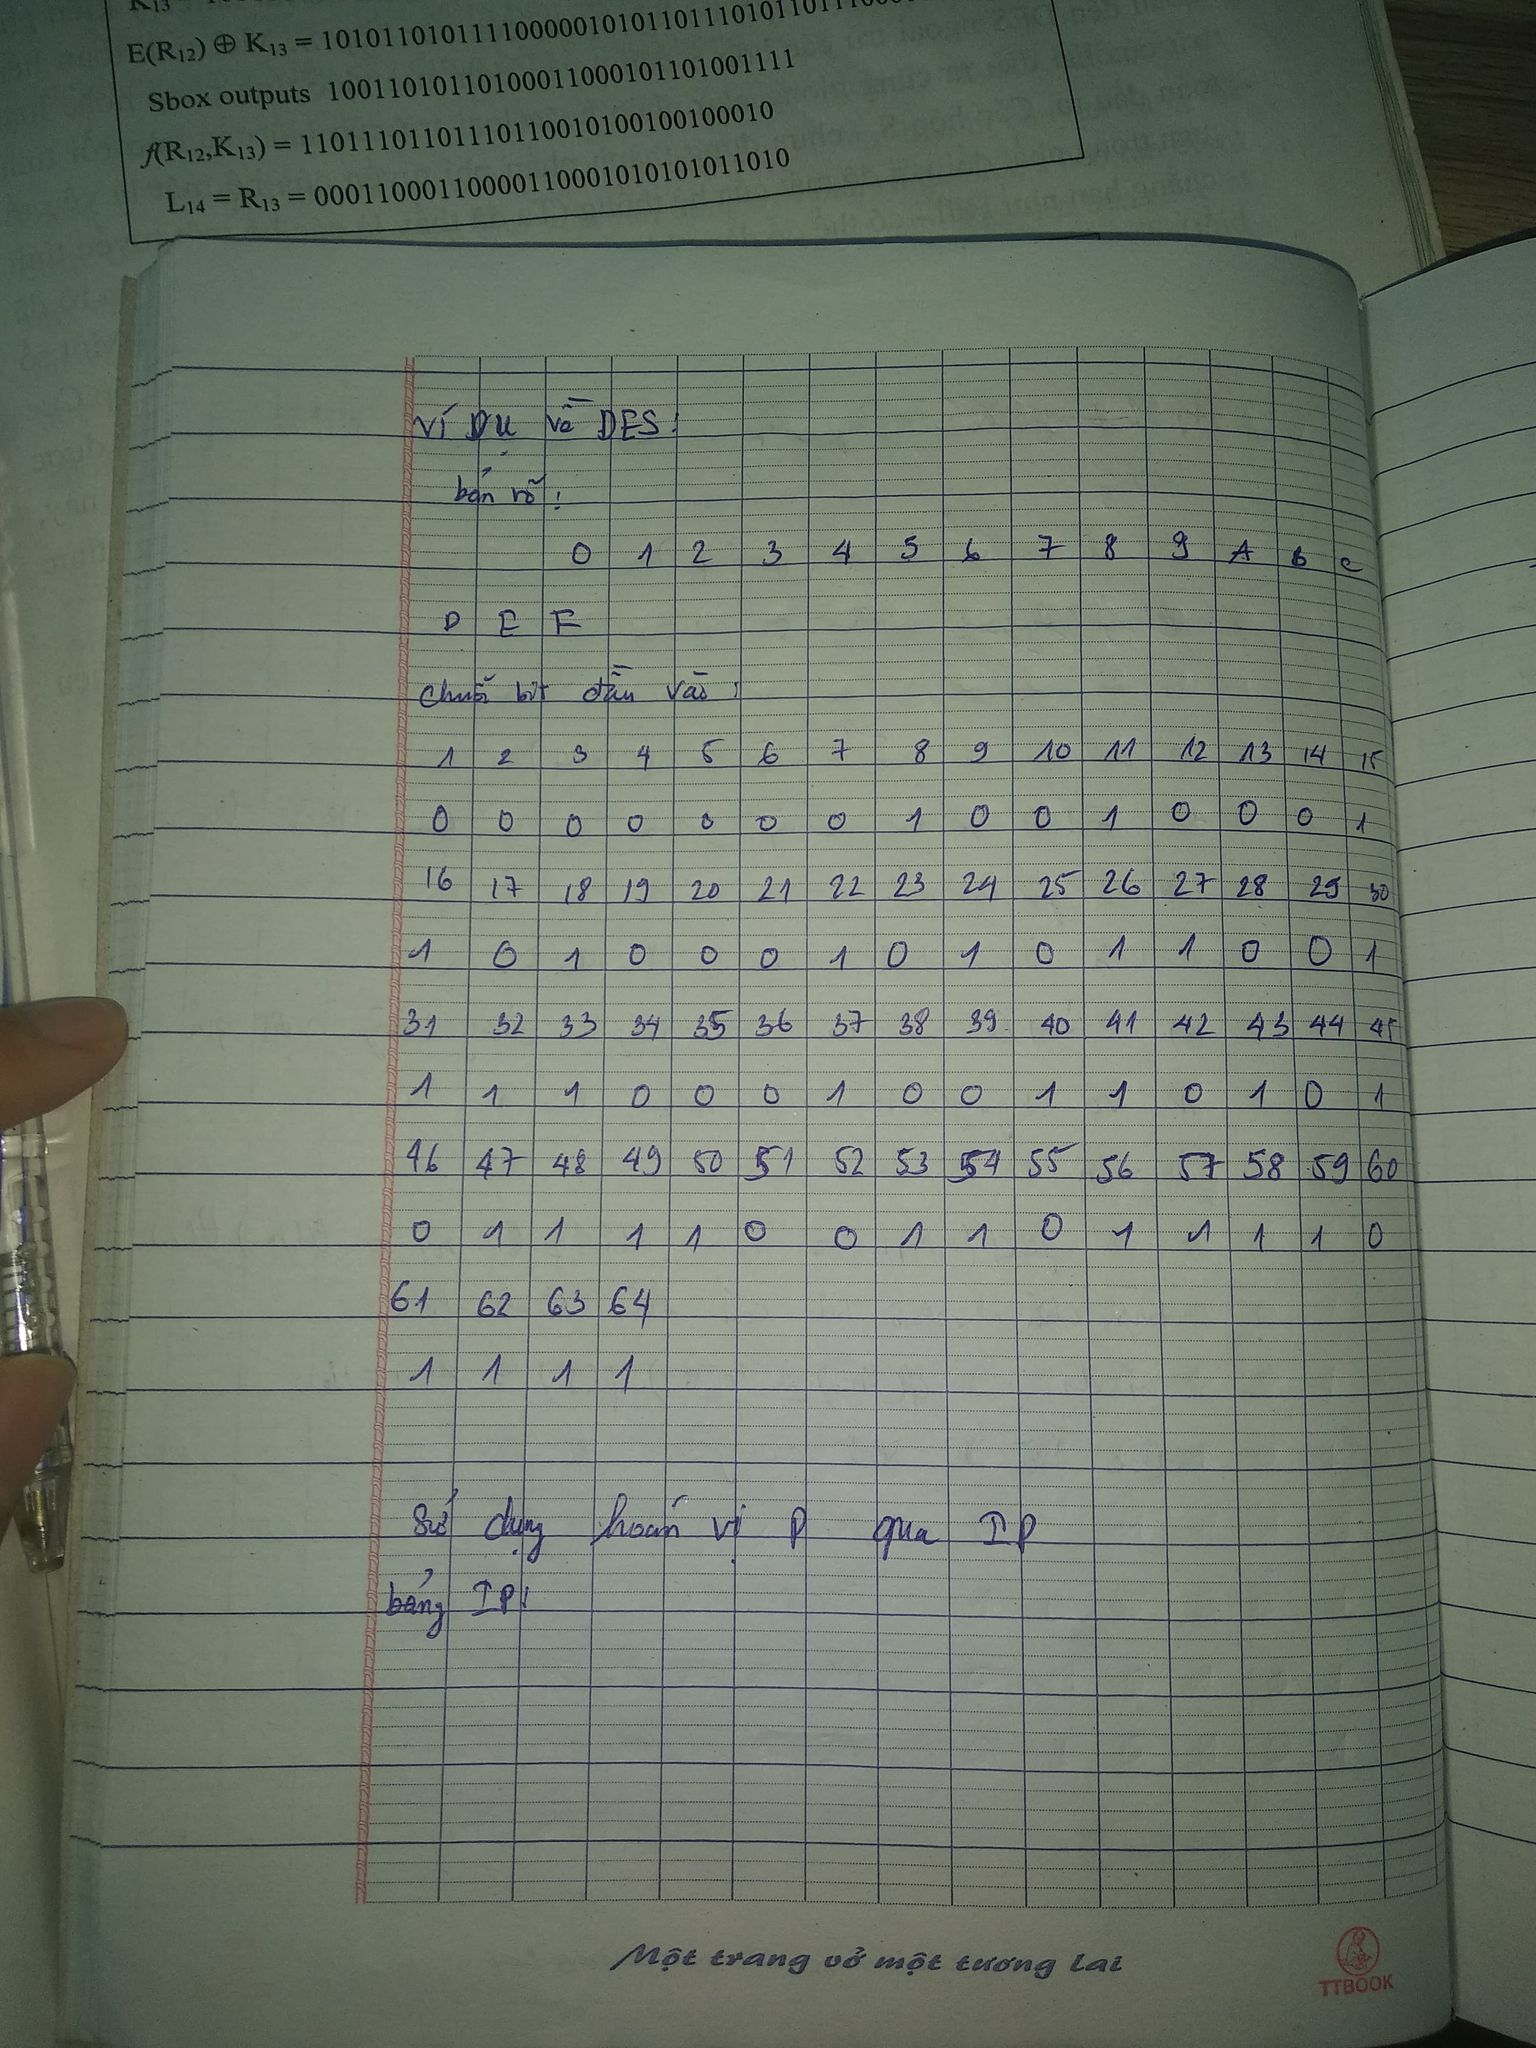 E(R12) ⊕ K13 =
Sbox outputs 10011010110100011000101101001111
f(R12,K13) = 11011101101110110010100100100010
L14 = R13 = 00011000110000110001010101011010
Ví Dụ về DES:
bản rõ:
0 1 2 3 4 5 6 7 8 9 A b c
D E F
chuỗi bit đầu vào:
1 2 3 4 5 6 7 8 9 10 11 12 13 14 15
0 0 0 0 0 0 0 1 0 0 1 0 0 0 1
16 17 18 19 20 21 22 23 24 25 26 27 28 29 30
1 0 1 0 0 0 1 0 1 0 1 1 0 0 1
31 32 33 34 35 36 37 38 39 40 41 42 43 44 45
1 1 1 0 0 0 1 0 0 1 1 0 1 0 1
46 47 48 49 50 51 52 53 54 55 56 57 58 59 60
0 1 1 1 1 0 0 1 1 0 1 1 1 1 0
61 62 63 64
1 1 1 1
Sử dụng hoán vị P qua IP
bảng IP:
Một trang vở một tương lai
TTBOOK